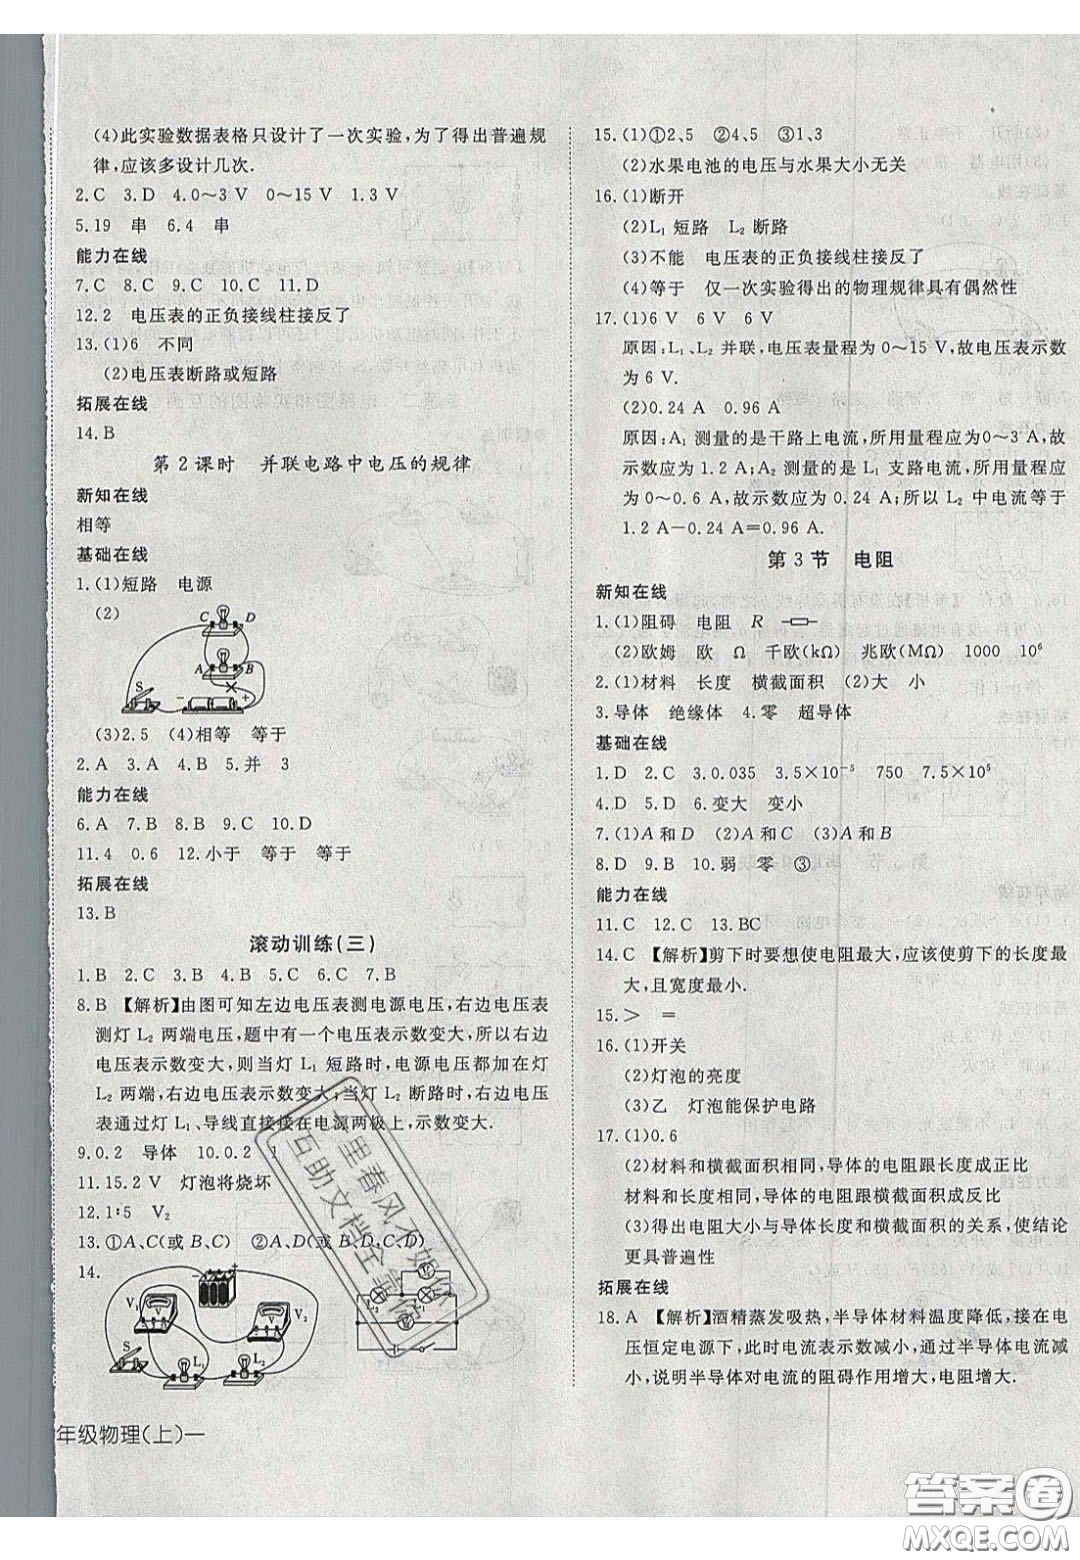 (4)此实验数据表格只设计了一次实验,为了得出普遍规
律,应该多设计几次.
2.C 3.D 4.0～3 V 0～15 V 1.3 V
5.19 串 6.4 串
能力在线
7.C 8.C 9.C 10.C 11.D
12.2 电压表的正负接线柱接反了
13.(1)6 不同
(2)电压表断路或短路
拓展在线
14.B
第2课时 并联电路中电压的规律
新知在线
相等
基础在线
1.(1)短路 电源
(2)
C D
A B
S − +
(3)2.5 (4)相等 等于
2.A 3.A 4.B 5.并 3
能力在线
6.A 7.B 8.B 9.C 10.D
11.4 0.6 12.小于 等于 等于
拓展在线
13.B
滚动训练(三)
1.B 2.C 3.B 4.B 5.B 6.C 7.B
8.B 【解析】由图可知左边电压表测电源电压,右边电压表
测灯 L₂ 两端电压,题中有一个电压表示数变大,所以右边
电压表示数变大,则当灯 L₁ 短路时,电源电压都加在灯
L₂ 两端,右边电压表示数变大;当灯 L₂ 断路时,右边电压
表通过灯 L₁、导线直接接在电源两极上,示数变大.
9.0.2 导体 10.0.2 1
11.15.2 V 灯泡将烧坏
12.1∶5 V₂
13.①A、C(或 B、C) ②A、D(或 B、D、C、D)
14.
V₁ V V V₂
S L₁ L₂
年级物理(上)—
15.(1)①2、5 ②4、5 ③1、3
(2)水果电池的电压与水果大小无关
16.(1)断开
(2)L₁ 短路 L₂ 断路
(3)不能 电压表的正负接线柱接反了
(4)等于 仅一次实验得出的物理规律具有偶然性
17.(1)6 V 6 V 6 V
原因:L₁、L₂ 并联,电压表量程为 0～15 V,故电压表示数
为 6 V.
(2)0.24 A 0.96 A
原因:A₁ 测量的是干路上电流,所用量程应为0～3 A,故
示数应为 1.2 A;A₂ 测量的是 L₁ 支路电流,所用量程应
为 0～0.6 A,故示数应为 0.24 A;所以 L₂ 中电流等于
1.2 A−0.24 A=0.96 A.
第3节 电阻
新知在线
1.(1)阻碍 电阻 R
(2)欧姆 欧 Ω 千欧(kΩ) 兆欧(MΩ) 1000 10⁶
2.(1)材料 长度 横截面积 (2)大 小
3.导体 绝缘体 4.零 超导体
基础在线
1.D 2.C 3.0.035 3.5×10⁻⁵ 750 7.5×10⁵
4.D 5.D 6.变大 变小
7.(1)A 和 D (2)A 和 C (3)A 和 B
8.D 9.B 10.弱 零 ③
能力在线
11.C 12.C 13.BC
14.C 【解析】剪下时要想使电阻最大,应该使剪下的长度最
大,且宽度最小.
15.＞ ＝
16.(1)开关
(2)灯泡的亮度
(3)乙 灯泡能保护电路
17.(1)0.6
(2)材料和横截面积相同,导体的电阻跟长度成正比
材料和长度相同,导体的电阻跟横截面积成反比
(3)得出电阻大小与导体长度和横截面积的关系,使结论
更具普遍性
拓展在线
18.A 【解析】酒精蒸发吸热,半导体材料温度降低,接在电
压恒定电源下,此时电流表示数减小,通过半导体电流减
小,说明半导体对电流的阻碍作用增大,电阻增大.
答案卷
MXQE.COM